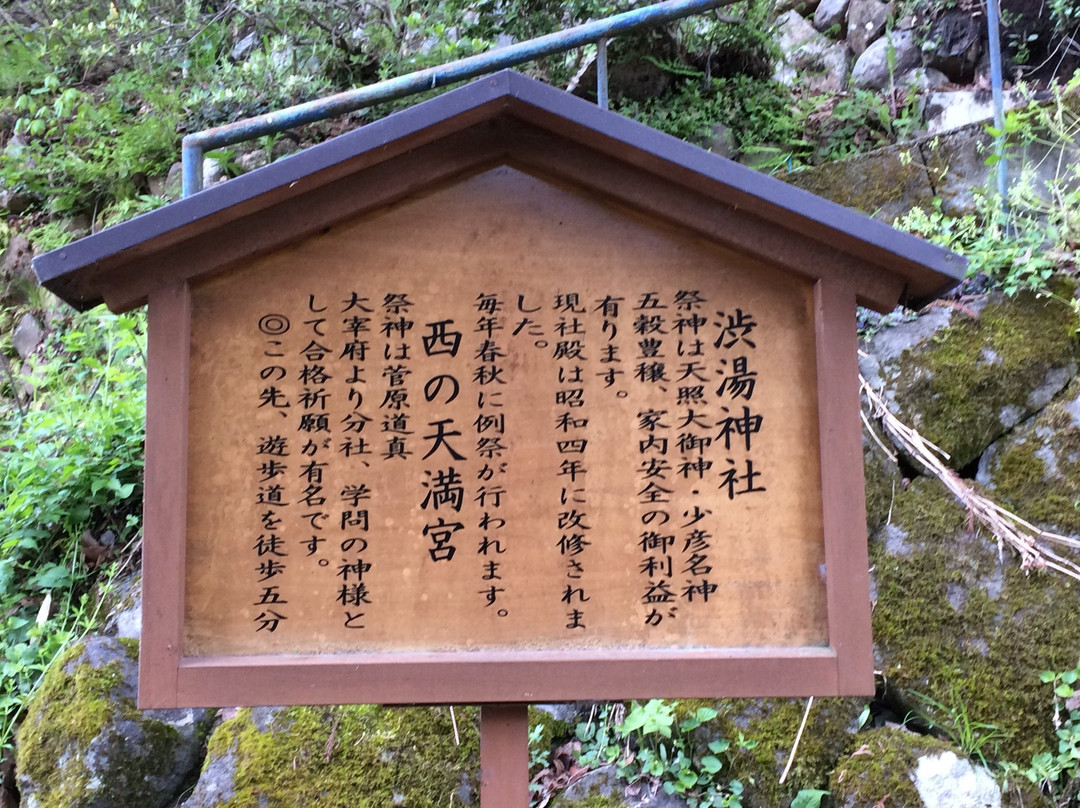 渋湯神社
祭神は天照大御神・少彦名神
五穀豊穣、家内安全の御利益が
有ります。
現社殿は昭和四年に改修されま
した。
毎年春秋に例祭が行われます。
西の天満宮
祭神は菅原道真
大宰府より分社、学問の神様と
して合格祈願が有名です。
◎この先、遊歩道を徒歩五分